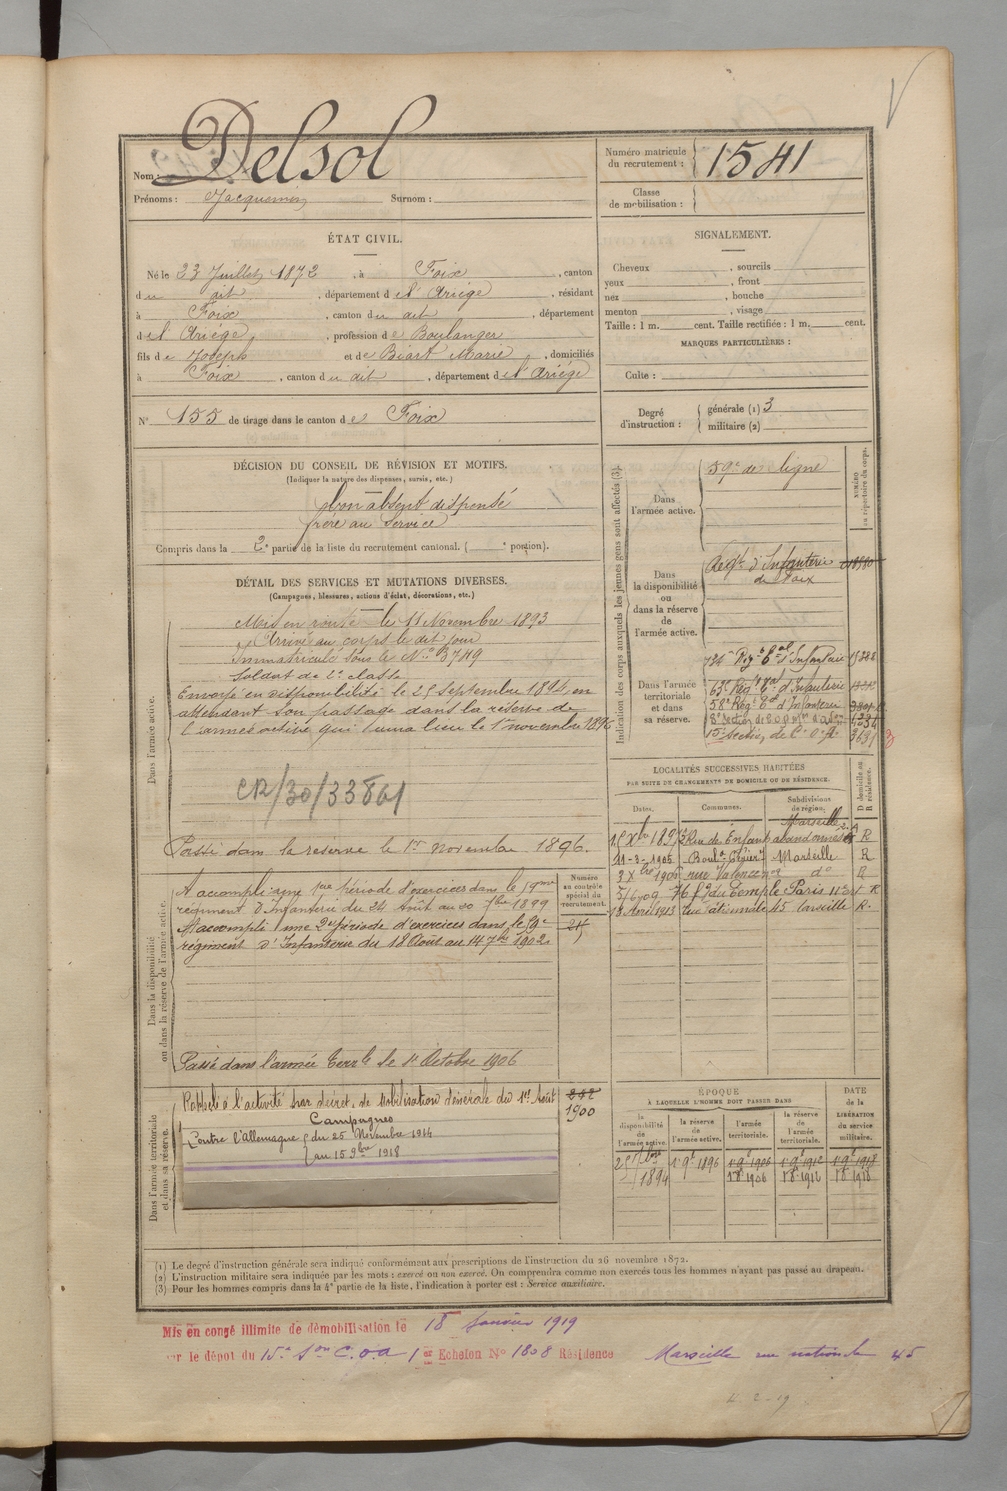 Nom : Delsol
Prénoms : Jacquemin Surnom :
Numéro matricule du recrutement : 1541
Classe de mobilisation :
ÉTAT CIVIL.
Né le 23 Juillet 1872, à Foix, canton
du dit, département de l'Ariège, résidant
à Foix, canton du dit, département
de l'Ariège, profession de Boulanger
fils de Joseph et de Biart Marie, domiciliés
à Foix, canton du dit, département de l'Ariège
N° 155 de tirage dans le canton de Foix
SIGNALEMENT.
Cheveux , sourcils
yeux , front
nez , bouche
menton , visage
Taille : 1 m. cent. Taille rectifiée : 1 m. cent.
MARQUES PARTICULIÈRES :
Culte :
Degré d'instruction : générale (1) 3
militaire (2)
DÉCISION DU CONSEIL DE RÉVISION ET MOTIFS.
(Indiquer la nature des dispenses, sursis, etc.)
bon absent dispensé
frère au service
Compris dans la 2e partie de la liste du recrutement cantonal. ( e portion).
DÉTAIL DES SERVICES ET MUTATIONS DIVERSES.
(Campagnes, blessures, actions d'éclat, décorations, etc.)
Dans l'armée active.
Mis en route le 11 Novembre 1893
Arrivé au corps le dit jour
Immatriculé sous le No 3749
Soldat de 2e classe
Envoyé en disponibilité le 25 septembre 1894, en
attendant son passage dans la réserve de
l'armée active qui aura lieu le 1er novembre 1896
CR/30/33861
Passé dans la réserve le 1er Novembre 1896.
Dans la disponibilité ou dans la réserve de l'armée active.
A accompli une 1ère période d'exercices dans le 59me
régiment d'Infanterie du 24 Août au 20 7bre 1899
A accompli une 2e période d'exercices dans le 59e
régiment d'Infanterie du 18 Août au 14 7bre 1902.
Passé dans l'armée terrle le 1er Octobre 1906
Numéro au contrôle spécial du recrutement.
Dans l'armée territoriale et dans sa réserve.
Rappelé à l'activité par décret de Mobilisation Générale du 1er Août
Campagnes
Contre l'Allemagne du 25 Novembre 1914
au 15 9bre 1918
1900
Indication des corps auxquels les jeunes gens sont affectés (3).
NUMÉRO au répertoire du corps.
Dans l'armée active.
59e de ligne
Dans la disponibilité ou dans la réserve de l'armée active.
Régt d'Infanterie
de Foix
Dans l'armée territoriale et dans sa réserve.
Régt Tal d'Infanterie
63e Régt Tal d'Infanterie
58e Régt Tal d'Infanterie
15e section de C.O.A. 3631
LOCALITÉS SUCCESSIVES HABITÉES
PAR SUITE DE CHANGEMENTS DE DOMICILE OU DE RÉSIDENCE.
Dates. Communes. Subdivisions de région. D domicile ou R résidence.
Rue des Enfants abandonnés Marseille R
11-3-1905 Marseille R
rue Valence do R
5/6/09 76 fg du Temple Paris R
1915 rue nationale 45 Marseille R.
ÉPOQUE
À LAQUELLE L'HOMME DOIT PASSER DANS
la disponibilité de l'armée active. la réserve de l'armée active. l'armée territoriale. la réserve de l'armée territoriale. DATE de la LIBÉRATION du service militaire.
25 7bre 1894 1er 9e 1896 1er 9e 1906 1er 9e 1912 1er 9e 1918
1er 8e 1906 1er 8e 1912 1er 8e 1918
(1) Le degré d'instruction générale sera indiqué conformément aux prescriptions de l'instruction du 26 novembre 1872.
(2) L'instruction militaire sera indiquée par les mots : exercé ou non exercé. On comprendra comme non exercés tous les hommes n'ayant pas passé au drapeau.
(3) Pour les hommes compris dans la 4e partie de la liste, l'indication à porter est : Service auxiliaire.
Mis en congé illimité de démobilisation le 18 Janvier 1919
par le dépôt du 15e Son C.O.A 1er Echelon No 1808 Résidence Marseille rue nationale 45